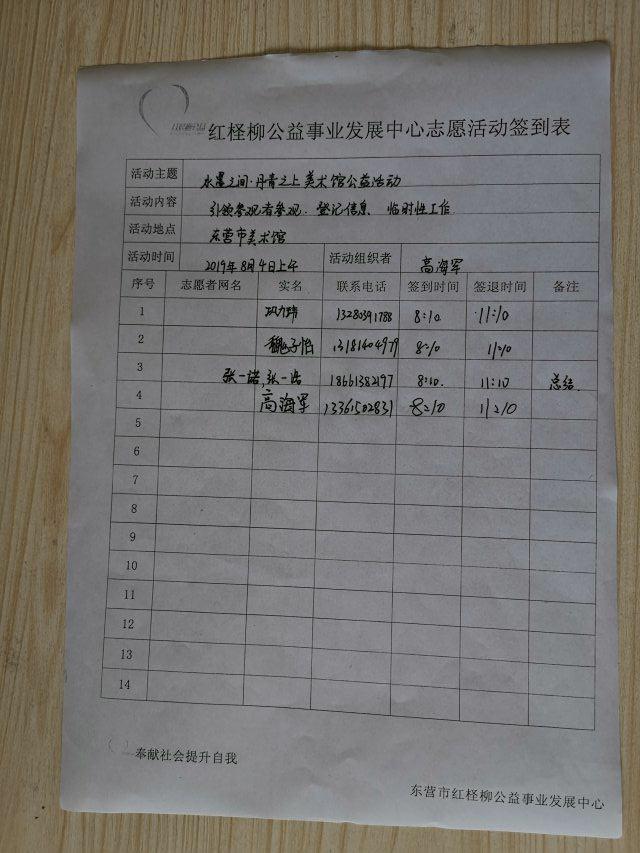 红柽柳公益事业发展中心志愿活动签到表
活动主题 水墨之间·丹青之上美术馆公益活动
活动内容 引领参观者参观、登记信息、临时性工作
活动地点 东营市美术馆
活动时间 2019年8月4日上午 活动组织者 高海军
序号 志愿者网名 实名 联系电话 签到时间 签退时间 备注
1 13280391788 8:10 11:10
2 魏子怡 13181404979 8:10 11:10
3 张一诺,张一诺 18661382197 8:10. 11:10 总结
4 高海军 13361502831 8:10 11:10
5
6
7
8
9
10
11
12
13
14
奉献社会提升自我
东营市红柽柳公益事业发展中心